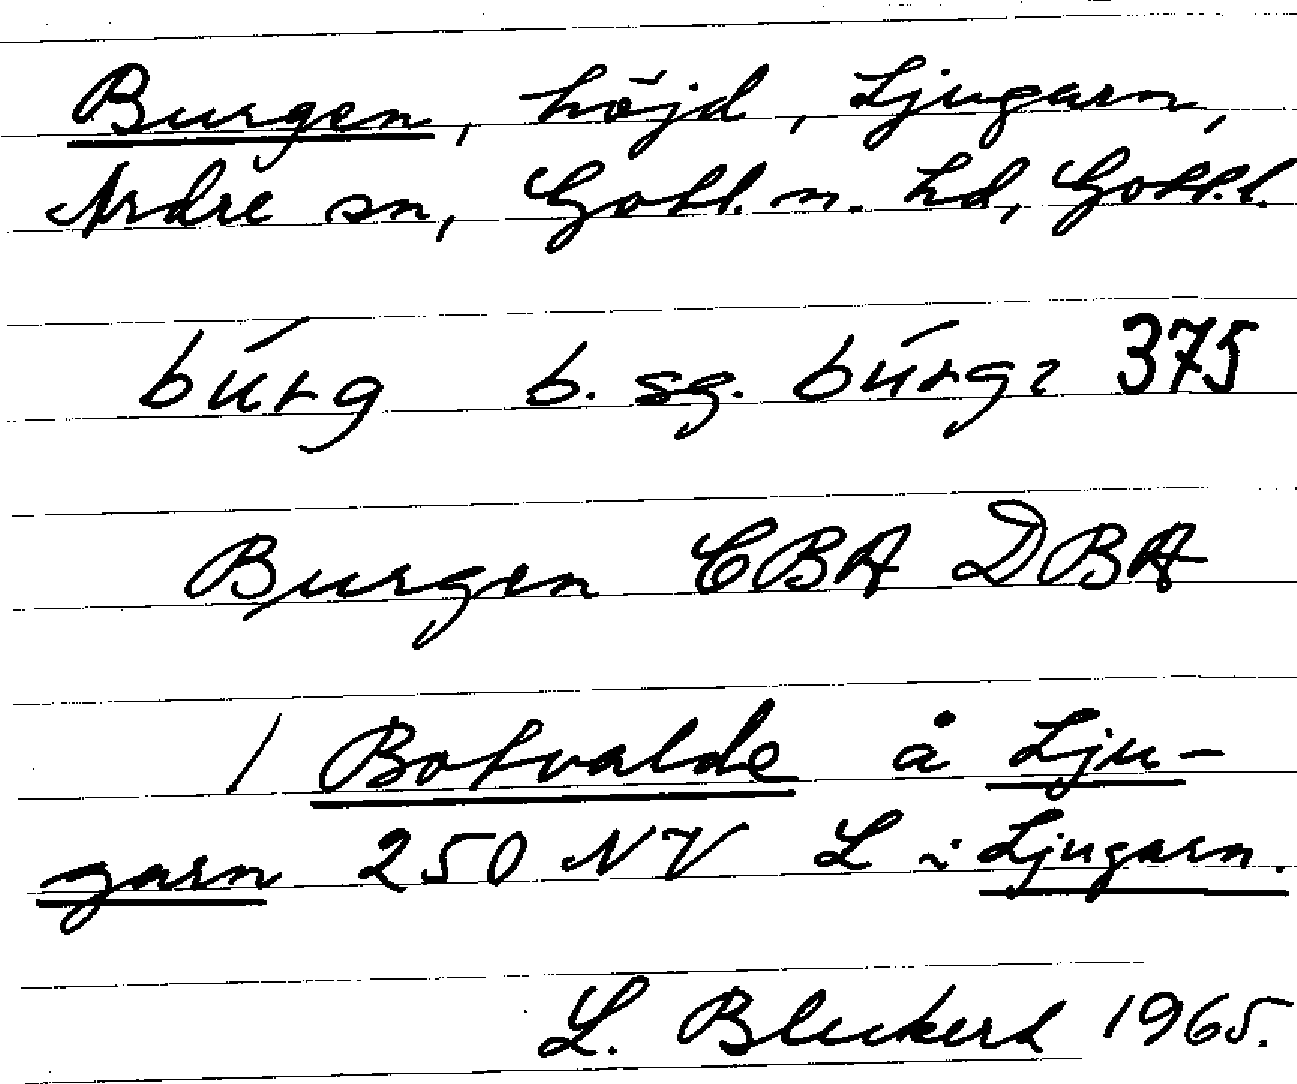 Burgen, höjd, Ljugarn,
Ardre sn, Gotl. n. hd, Gotl. l.
búrg b. sg. búrgɿ 375
Burgen CBA DBA
/ Botvalde å Lju-
garn 250 NV L i Ljugarn.
L. Bleckert 1965.